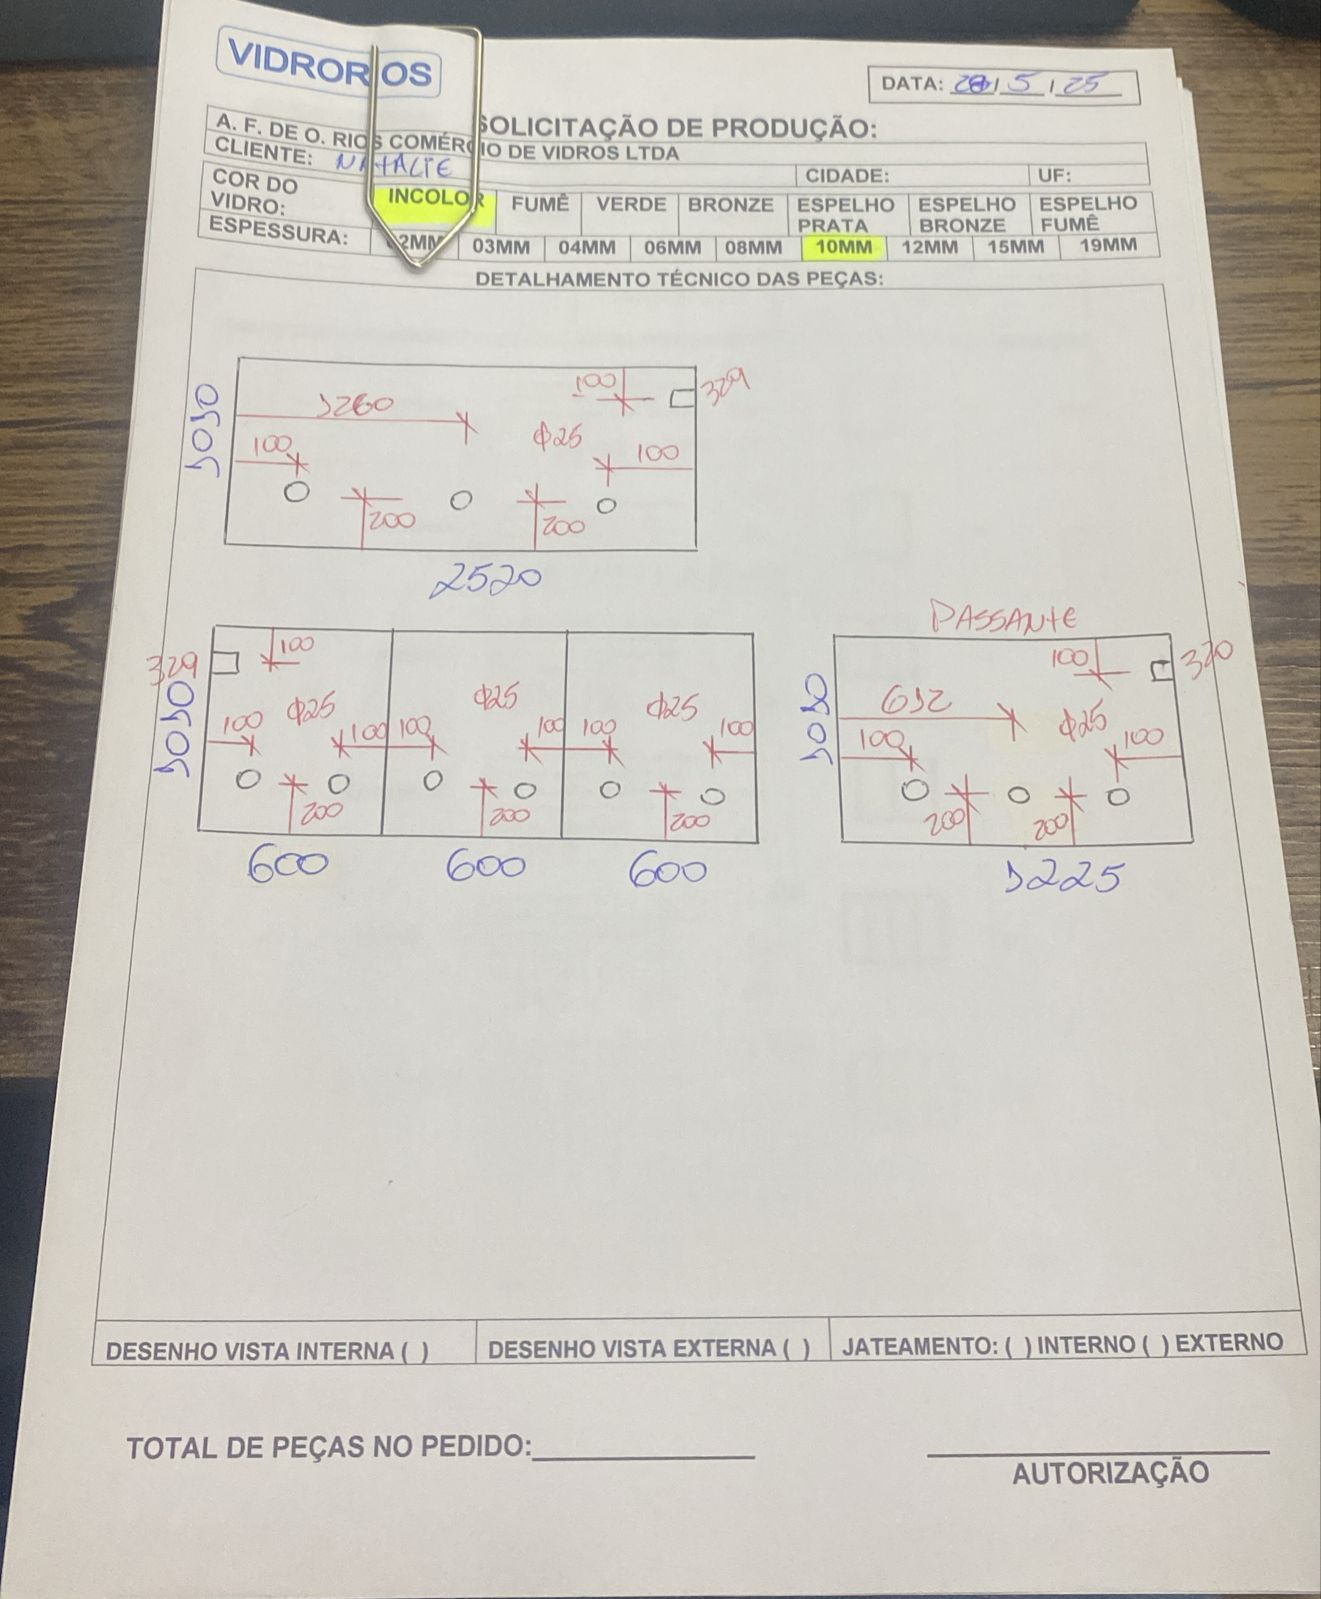 VIDRORIOS
DATA: 28/5/25
SOLICITAÇÃO DE PRODUÇÃO:
A. F. DE O. RIOS COMÉRCIO DE VIDROS LTDA
CLIENTE: NATALIE
CIDADE: UF:
COR DO VIDRO: INCOLOR FUMÊ VERDE BRONZE ESPELHO PRATA ESPELHO BRONZE ESPELHO FUMÊ
ESPESSURA: 02MM 03MM 04MM 06MM 08MM 10MM 12MM 15MM 19MM
DETALHAMENTO TÉCNICO DAS PEÇAS:
100 329
1260
Φ25
100 100
1010
200 200
2520
PASSANTE
329 100
100 320
1010
Φ25 Φ25 Φ25
612 Φ25
1010
100 100 100 100 100 100
100 100
200 200 200
200 200
600 600 600
1225
DESENHO VISTA INTERNA ( ) DESENHO VISTA EXTERNA ( ) JATEAMENTO: ( ) INTERNO ( ) EXTERNO
TOTAL DE PEÇAS NO PEDIDO:
AUTORIZAÇÃO